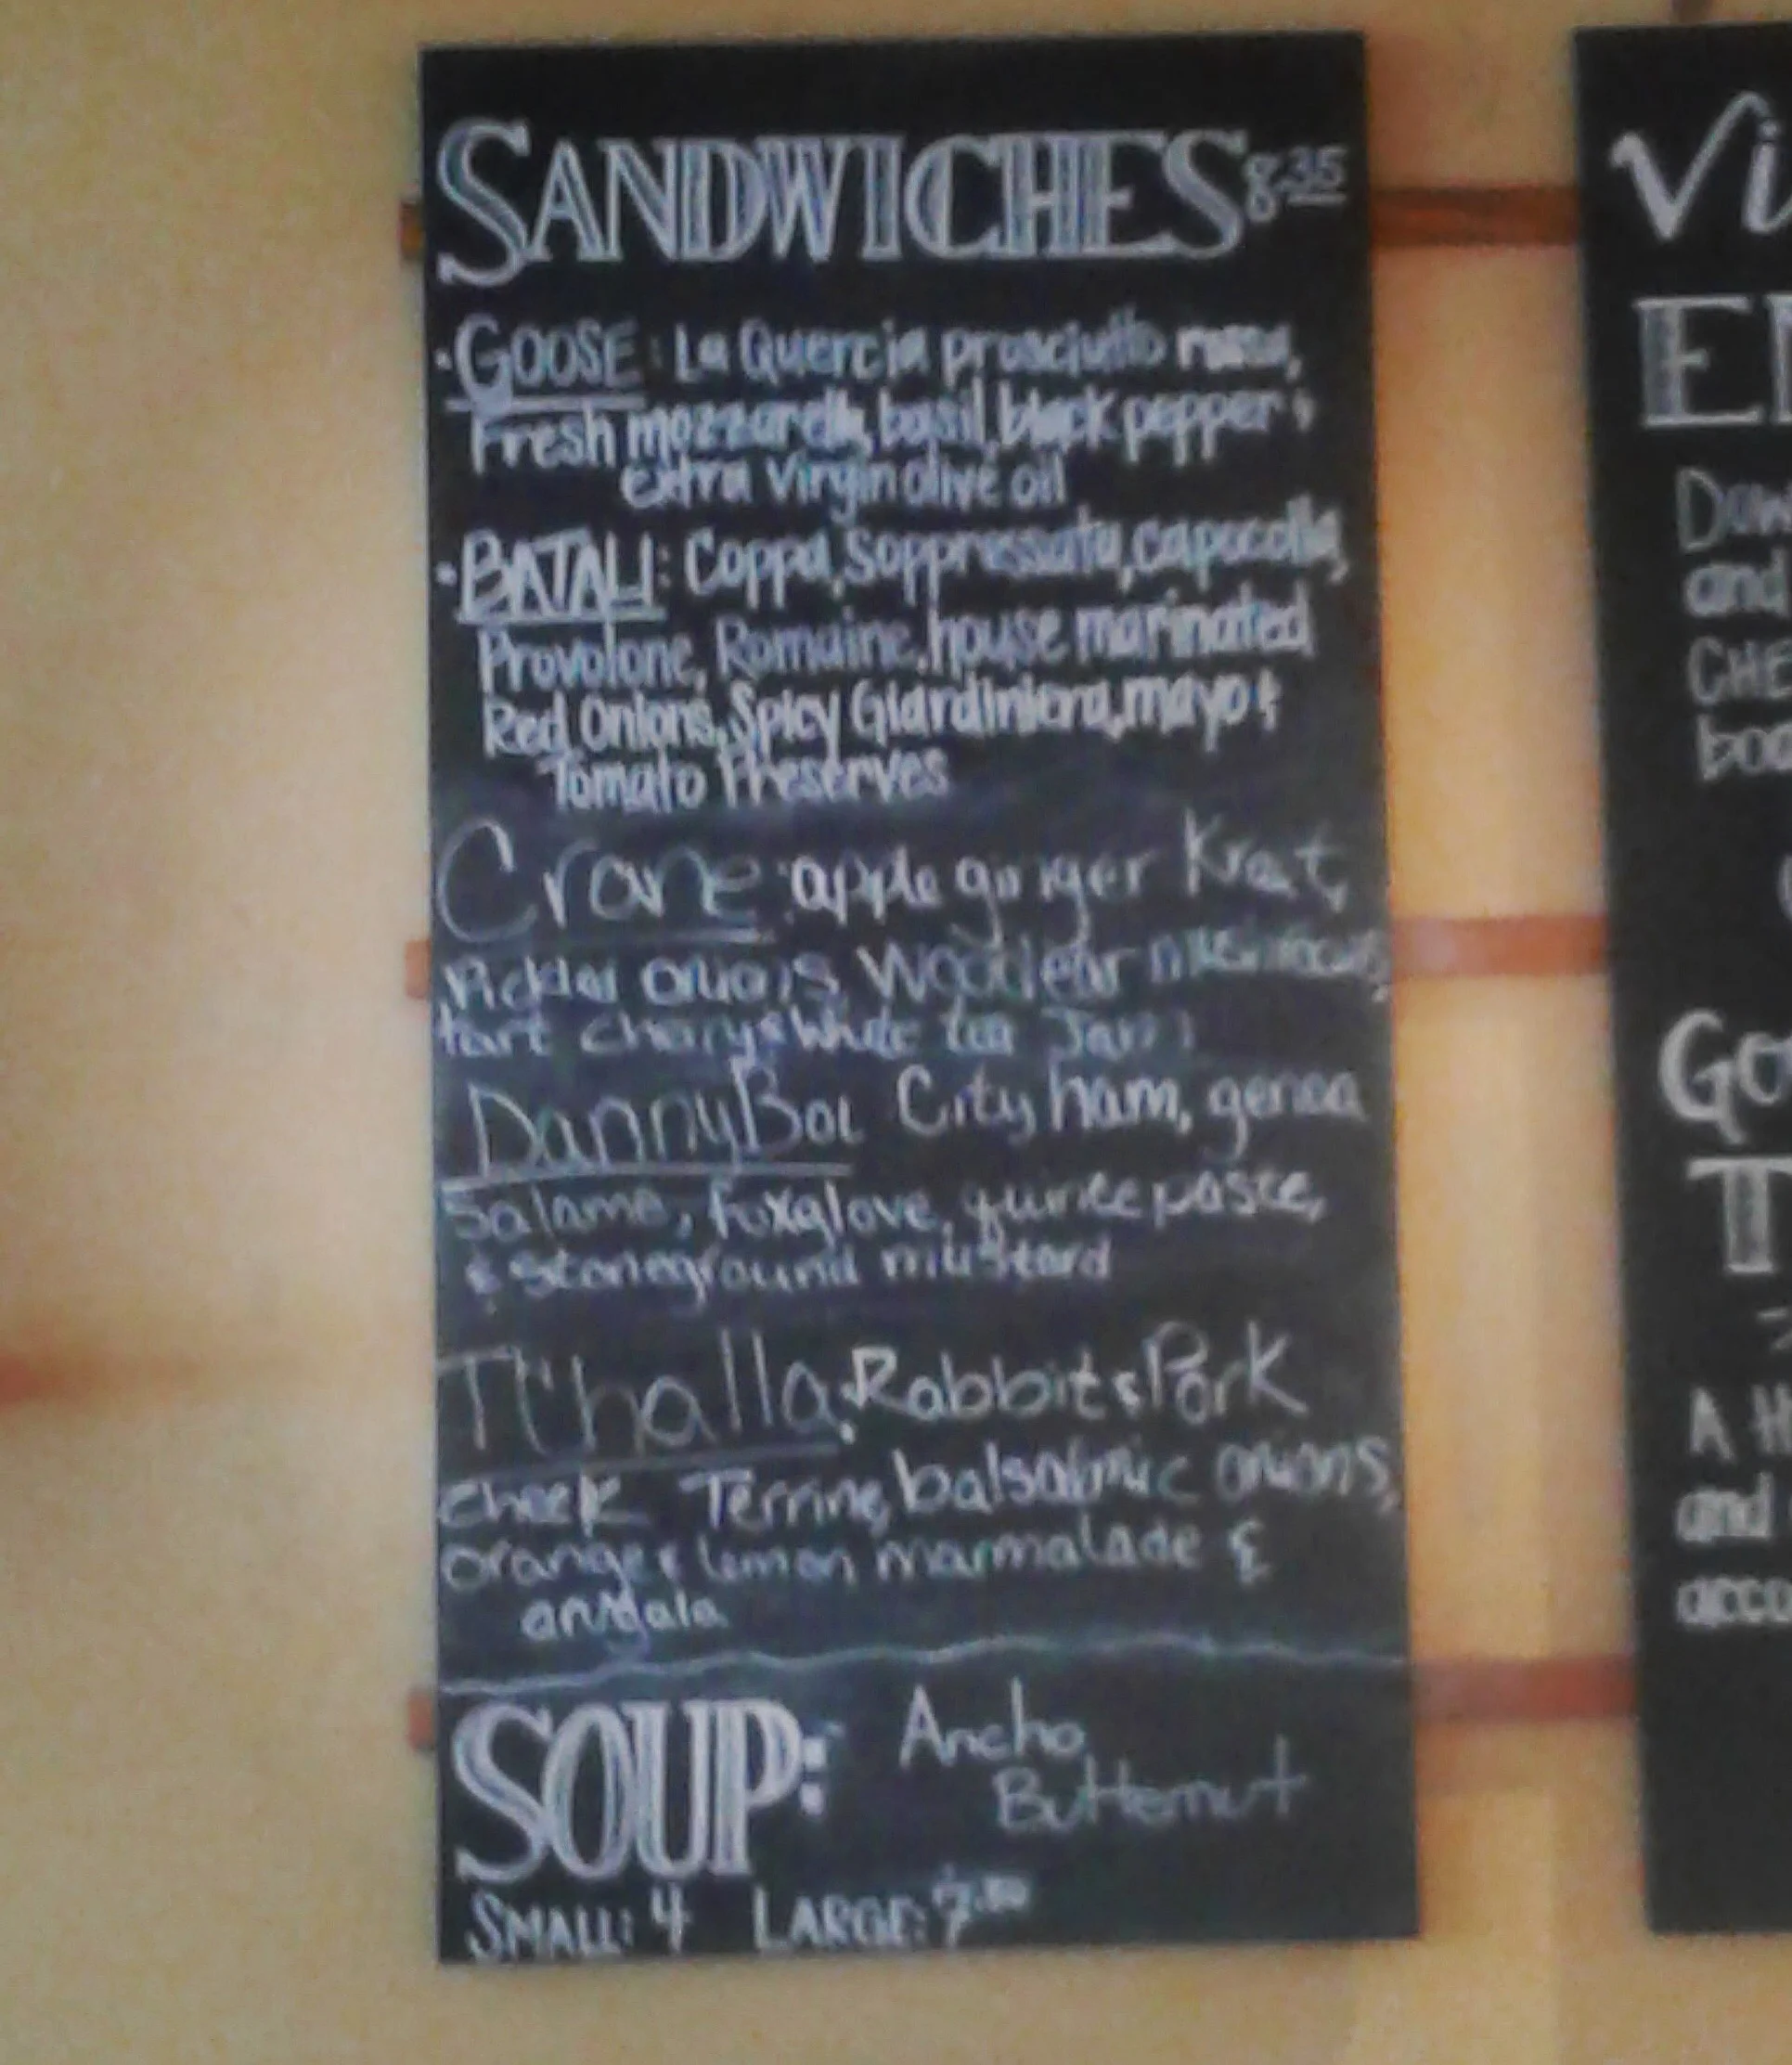 SANDWICHES 8.35
· GOOSE: La Quercia prosciutto
Fresh mozzarella, basil, black pepper &
extra virgin olive oil
· BATALI: Coppa, Soppressata, capocolla,
Provolone, Romaine, house marinated
Red Onions, Spicy Giardiniera, mayo &
Tomato Preserves
Crane: apple ginger Kraut,
Pickled onions, Woodear mushrooms,
tart cherry & White tea Jam
DannyBoi City ham, genoa
Salame, foxglove, quince paste,
& stoneground mustard
T'Challa: Rabbit & Pork
cheek Terrine, balsalmic onions,
orange & lemon marmalade &
arugala
SOUP: Ancho
Butternut
SMALL: 4 LARGE:
Vi
Dow
and
CHE
boa
Go
T
A H
and
acco